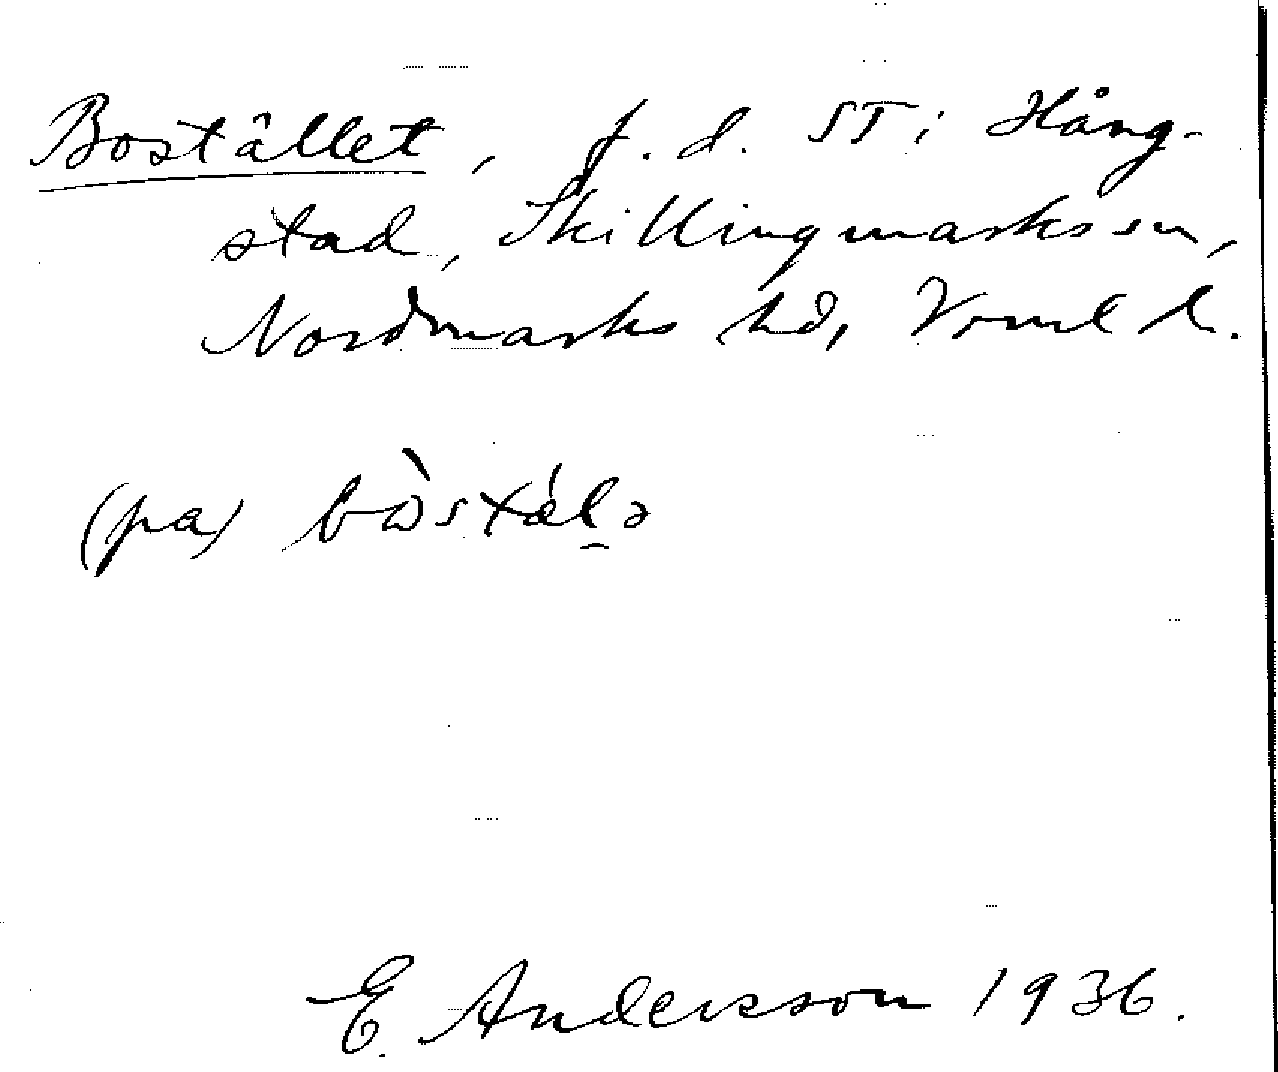 Bostället, f. d. ST i Häng-
stad, Skillingmarks sn,
Nordmarks hd, Vrml l.
(pa) bòstälə
E. Andersson 1936.